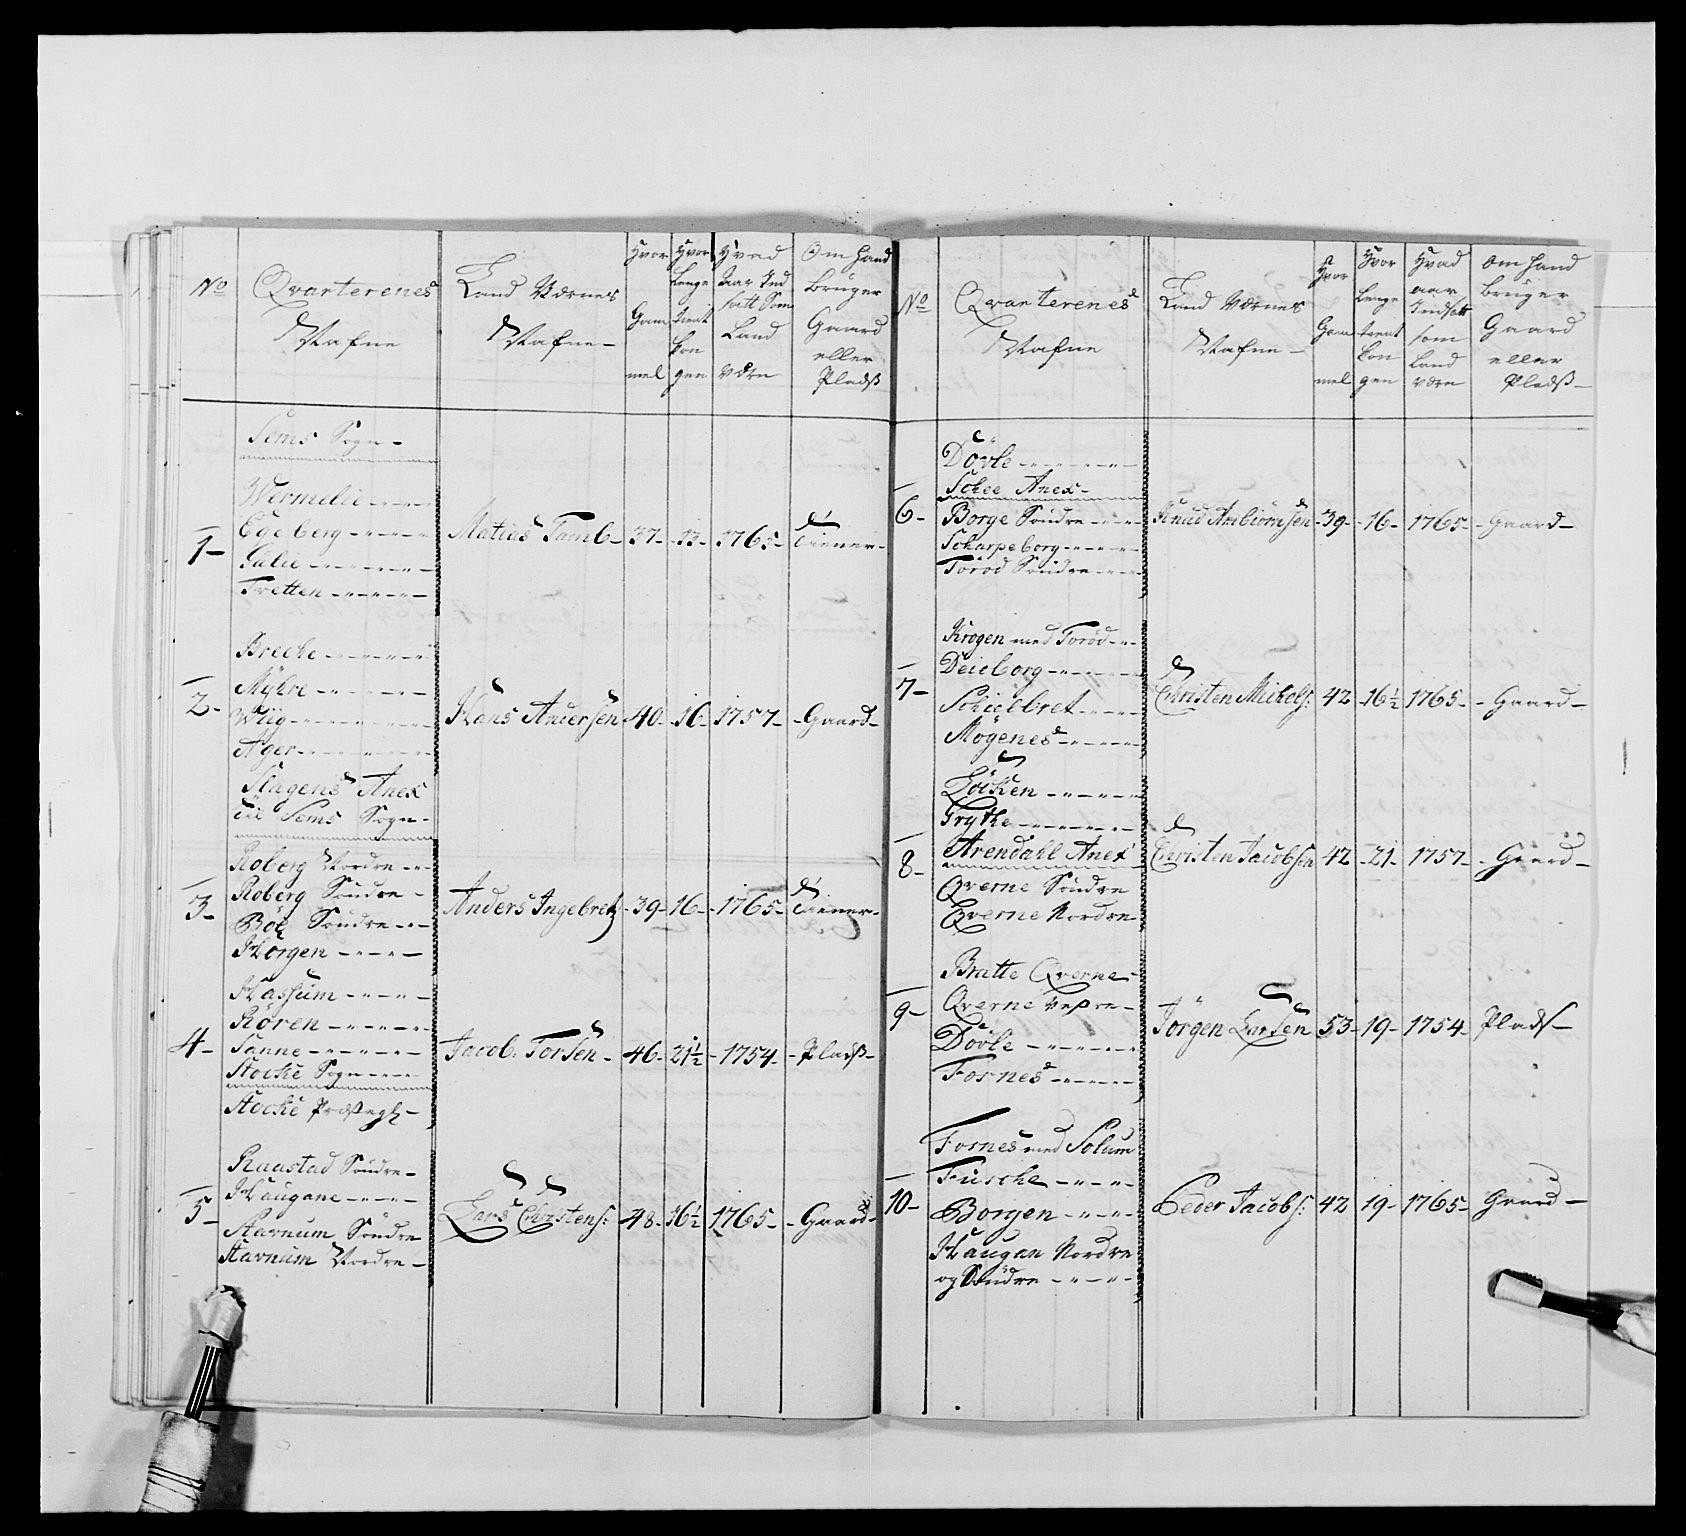 No
Qvarterenes
Nafne
Land Værnes
Nafne
Hvor
Gam
mel
Hvor
Lenge
tient
Kon
gen
Hvad
Aar Ind
satt Som
Land
Værn
Om hand
Bruger
Gaard
eller
Pladß
Sems Sogn
Wermelie
Egeberg
Galie
Tretten
1 Matias Tamb 37 13 1765 Tiener
Breche
Mÿhre
Wiig
Ager
2 Hans Andersen 40 16 1757 Gaard
Slagens Anex
til Sems Sogn
Roberg Nordre
Roberg Søndre
Bøe Søndre
Horgen
3 Anders Ingebretz 39 16 1765 Tiener
Hassum
Røren
Sanne
Stocke Sogn
Stocke Præstegl
4 Jacob Torsen 46 21½ 1754 Pladß
Raastad Søndre
Haugane
Starnum Søndre
Starnum Nordre
5 Lars Christens: 48 16½ 1765 Gaard
No
Qvarterenes
Nafne
Land Værnes
Nafne
Hvor
Gam
mel
Hvor
Lenge
tient
Kon
gen
Hvad
aar
Indsatt
som
Land
værn
Om hand
Bruger
Gaard
eller
Pladß
Døvle
Schee Anex
Borge Søndre
Scharpeborg
Torød Søndre
6 Knud Anbiørnsen 39 16 1765 Gaard
Krogen med Torød
Deieborg
Schielbret
Møgenes
7 Christen Michels: 42 16½ 1765 Gaard
Løcken
Grythe
Arendahl Anex
Qverne Søndre
Qverne Nordre
8 Christen Jacobsen 42 21 1757 Gaard
Bratte Qverne
Qverne vestre
Døvle
Fornes
9 Jørgen Larsen 53 19 1754 Plads
Fornes med Solum
Fusche
Borgen
Haugan Nordre
og Søndre
10 Peder Jacobs: 42 19 1765 Gaard